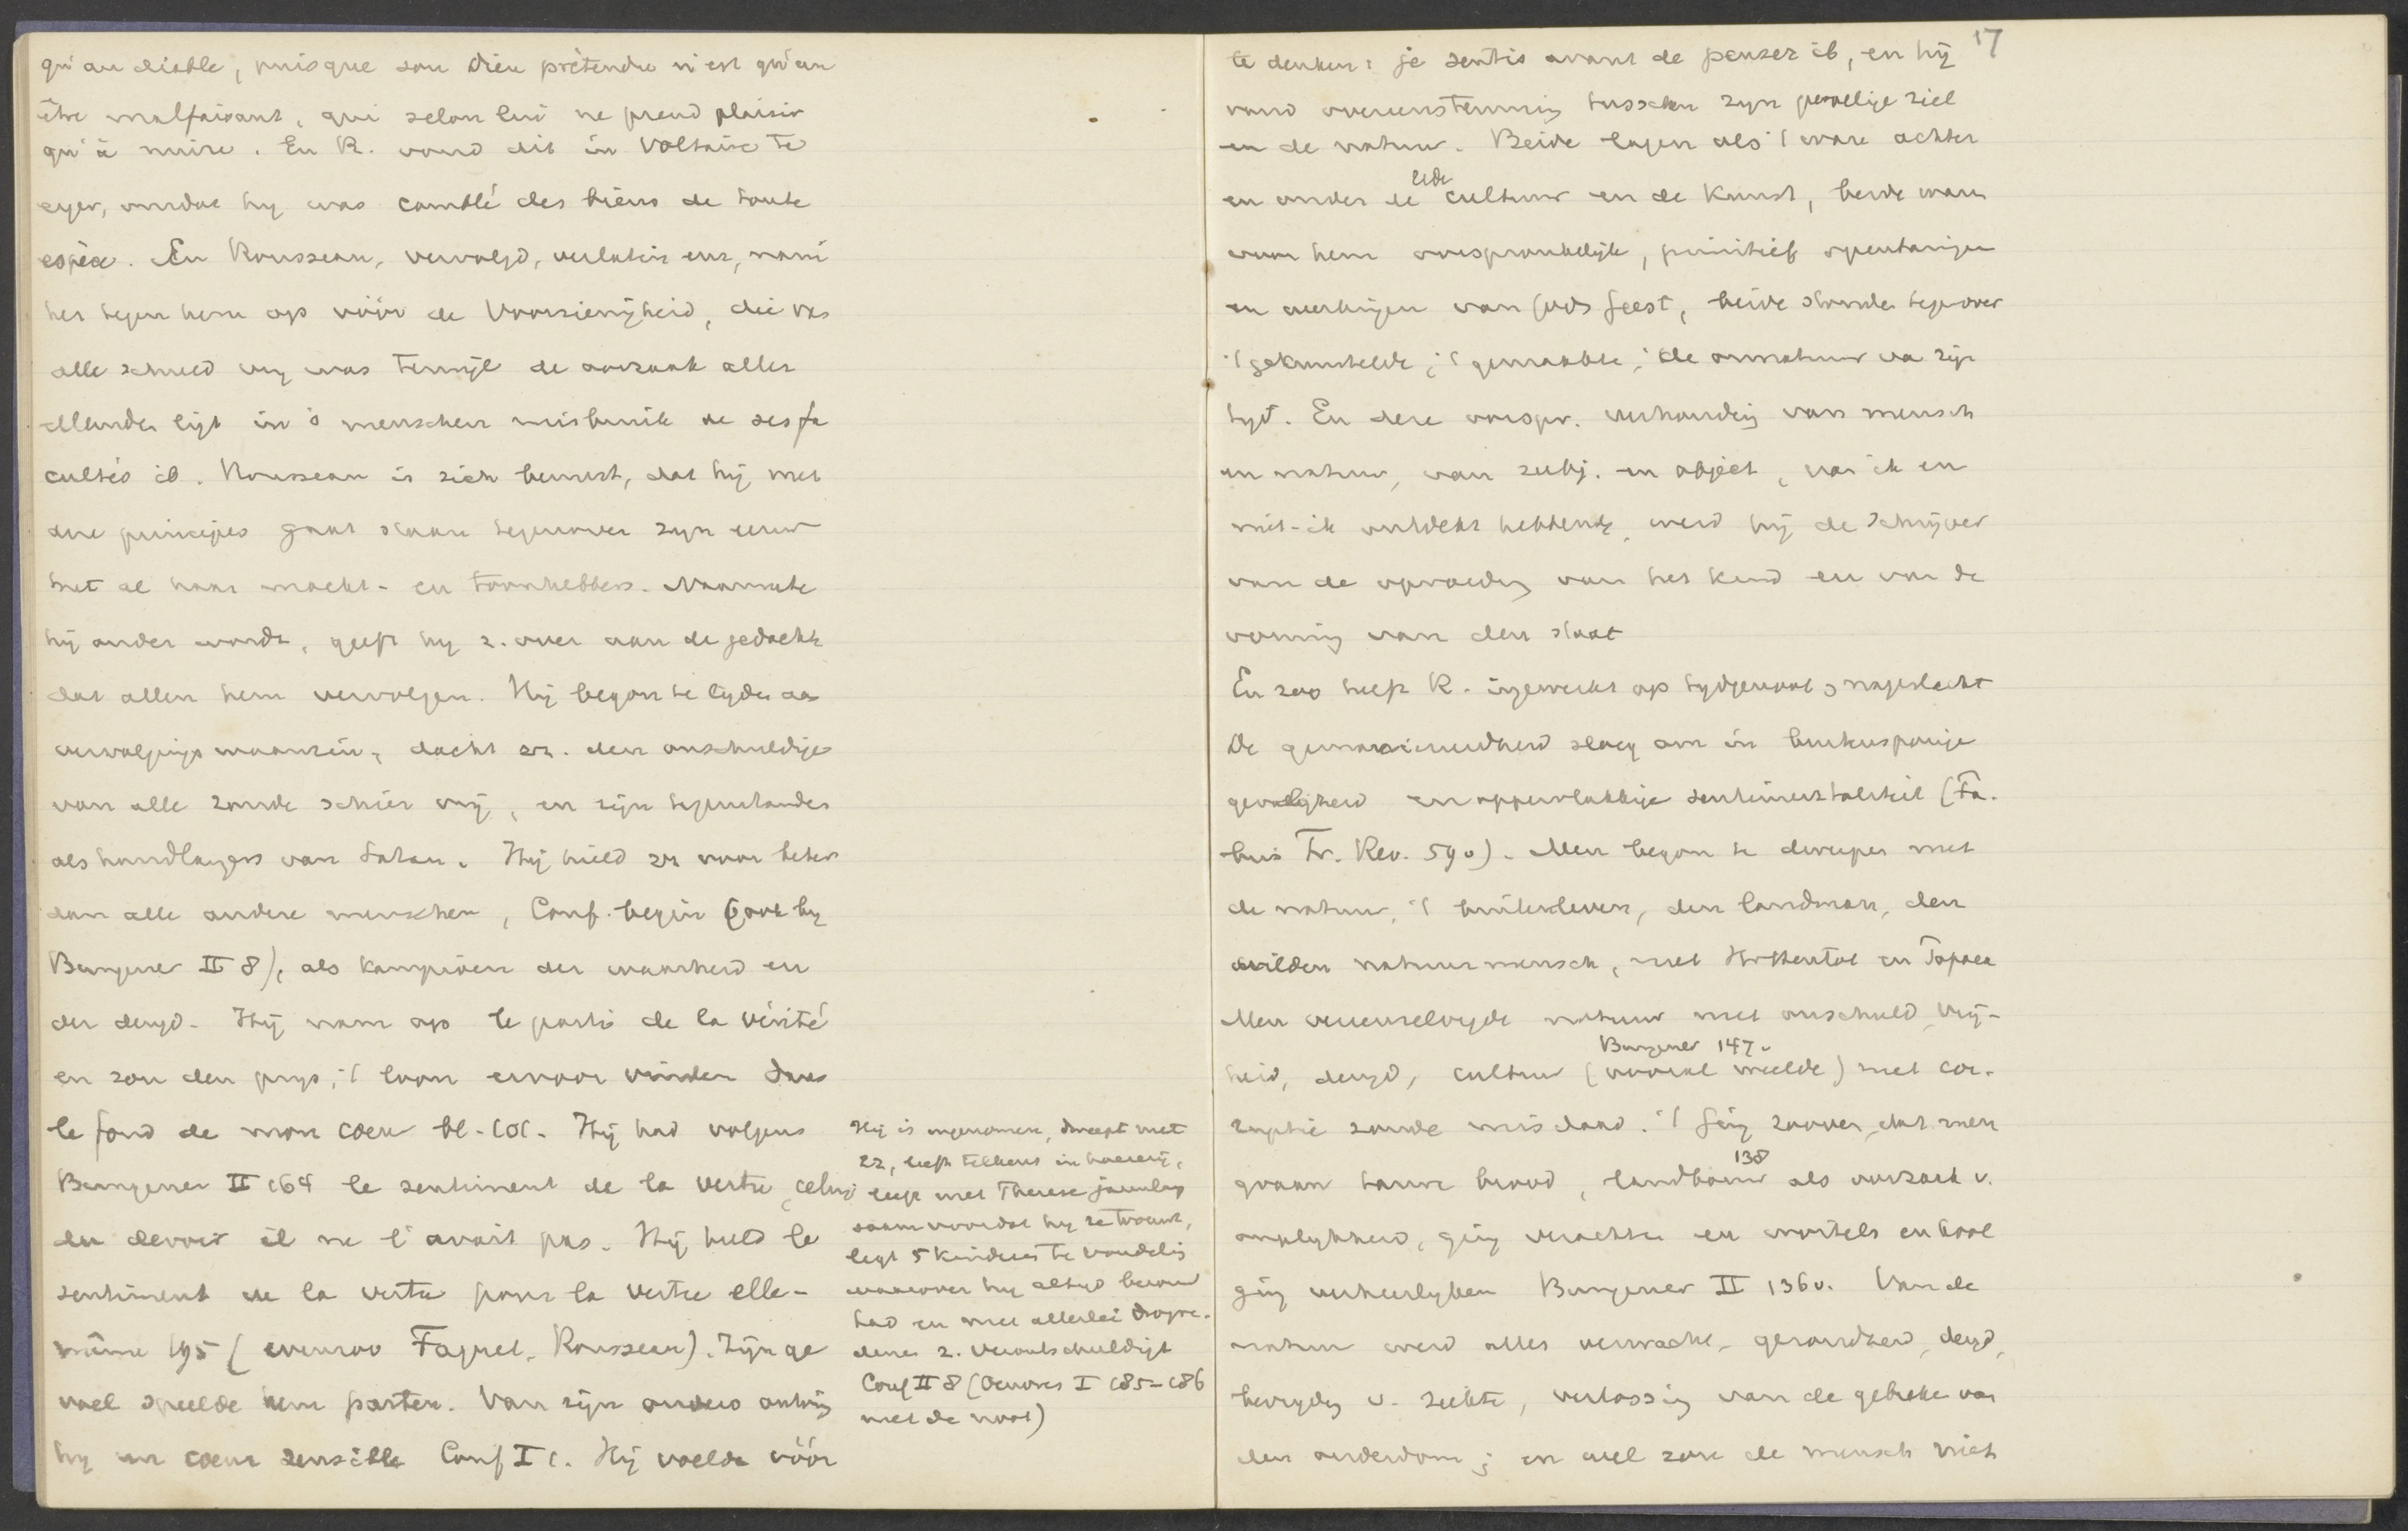 qu'au diable, puisque son Dieu prétendu n'est qu'un
être malfaisant, qui selon lui ne prend plaisir
qu'à nuire. En R. vond dit in Voltaire te
erger, omdat hy was comblé des biens de toute
espèce. En Rousseau, vervolgd, verlaten enz, nam
het tegen hem op vóór de Voorzienigheid, die van
alle schuld vry was terwijl de oorzaak aller
ellenden ligt in 's menschen misbruik de ses fa
cultés ib. Rousseau is zich bewust, dat hij met
deze principes gaat staan tegenover zyn eeuw
met al haar macht- en toonhebbers. Naarmate
hij ouder wordt, geeft hy z. over aan de gedachte
dat allen hem vervolgen. Hij begon te lyden aan
vervolgingswaanzin, dacht zr. den onschuldige
van alle zonde schier vrij, en zijn tegenstanders
als handlangers van Satan. Hij hield zr voor beter
dan alle andere menschen, Conf. begin (ook by
Bungener II 8), als kampioen der waarheid en
der deugd. Hij nam op le parti de la vérité
en zou den prys, 't loon ervoor vinden dans
le fond de mon coeur bl. 101. Hij had volgens
Bungener II 164 le sentiment de la vertu, celui
du devoir il ne l'avait pas. Hij hield le
sentiment de la vertu pour la vertu elle-
même 195 (evenzoo Faguet, Rousseau). Zijn ge
voel speelde hem parten. Van zijn ouders ontving
hy un coeur sensible Conf I 1. Hij voelde vóór
Hij is ingenomen, dweept met
zz, leeft telkens in hoererij,
leeft met Therese jarenlang
saam voordat hy ze trouwt,
legt 5 kinderen te vondeling
waarover hy altyd berouw
had en met allerlei drogre-
denen z. verontschuldigt
Conf II 8 (Oeuvres I 185-186
met de noot)
17
te denken: je sentis avant de penser ib, en hij
vond overeenstemming tusschen zyn gevoelige ziel
en de natuur. Beide lagen als 't ware achter
en onder de cultuur en de kunst, beide waren
voor hem oorspronkelyk, primitief, openbaringen
en werkingen van Gods geest, beide stonden tegenover
't gekunstelde, 't gemaakte, de onnatuur van zijn
tyd. En deze oorspr. verhouding van mensch
en natuur, van subj. en object, van ik en
niet-ik ontdekt hebbende, werd hij de schrijver
van de opvoeding van het kind en van de
vorming van den staat
En zoo heeft R. ingewerkt op tydgenoot en nageslacht
De gemanierdheid sloeg om in
gevoeligheid en oppervlakkige sentimentaliteit (Fa.
bius Fr. Rev. 59v). Men begon te dweepen met
de natuur, 't buitenleven, den landman, den
wilden natuurmensch, met Hottentot en Papoea
Men vereenzelvigde natuur met onschuld, vrij-
heid, deugd, cultuur (vooral weelde) met cor-
Bungener 147v
ruptie zonde misdaad. 't ging zoover, dat men
graan tarwe brood, landbouw als oorzaak v.
138
ongelykheid, ging verachten en wortels en kool
ging verheerlyken Bungener II 136v. Van de
natuur werd alles verwacht, gezondheid, deugd,
bevryding v. ziekte, verlossing van de gebreken van
den ouderdom; en wel zou de mensch niet